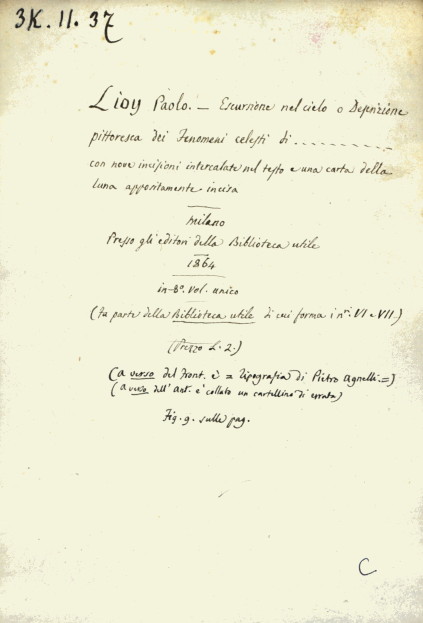 3K.II.37
Lioy Paolo. — Escursione nel cielo o Descrizione
pittoresca dei Fenomeni celesti di ..........
con nove incisioni intercalate nel testo e una carta della
luna appositamente incisa
Milano
Presso gli editori della Biblioteca utile
1864
in-8º. Vol. unico
(Fa parte della Biblioteca utile di cui forma i nⁱ. VI e VII.)
(Prezzo L. 2.)
(a verso del front. è = Tipografia di Pietro Agnelli. =)
(a verso dell' ant. è collato un cartellino di errata)
Fig. 9. sulle pag.
C